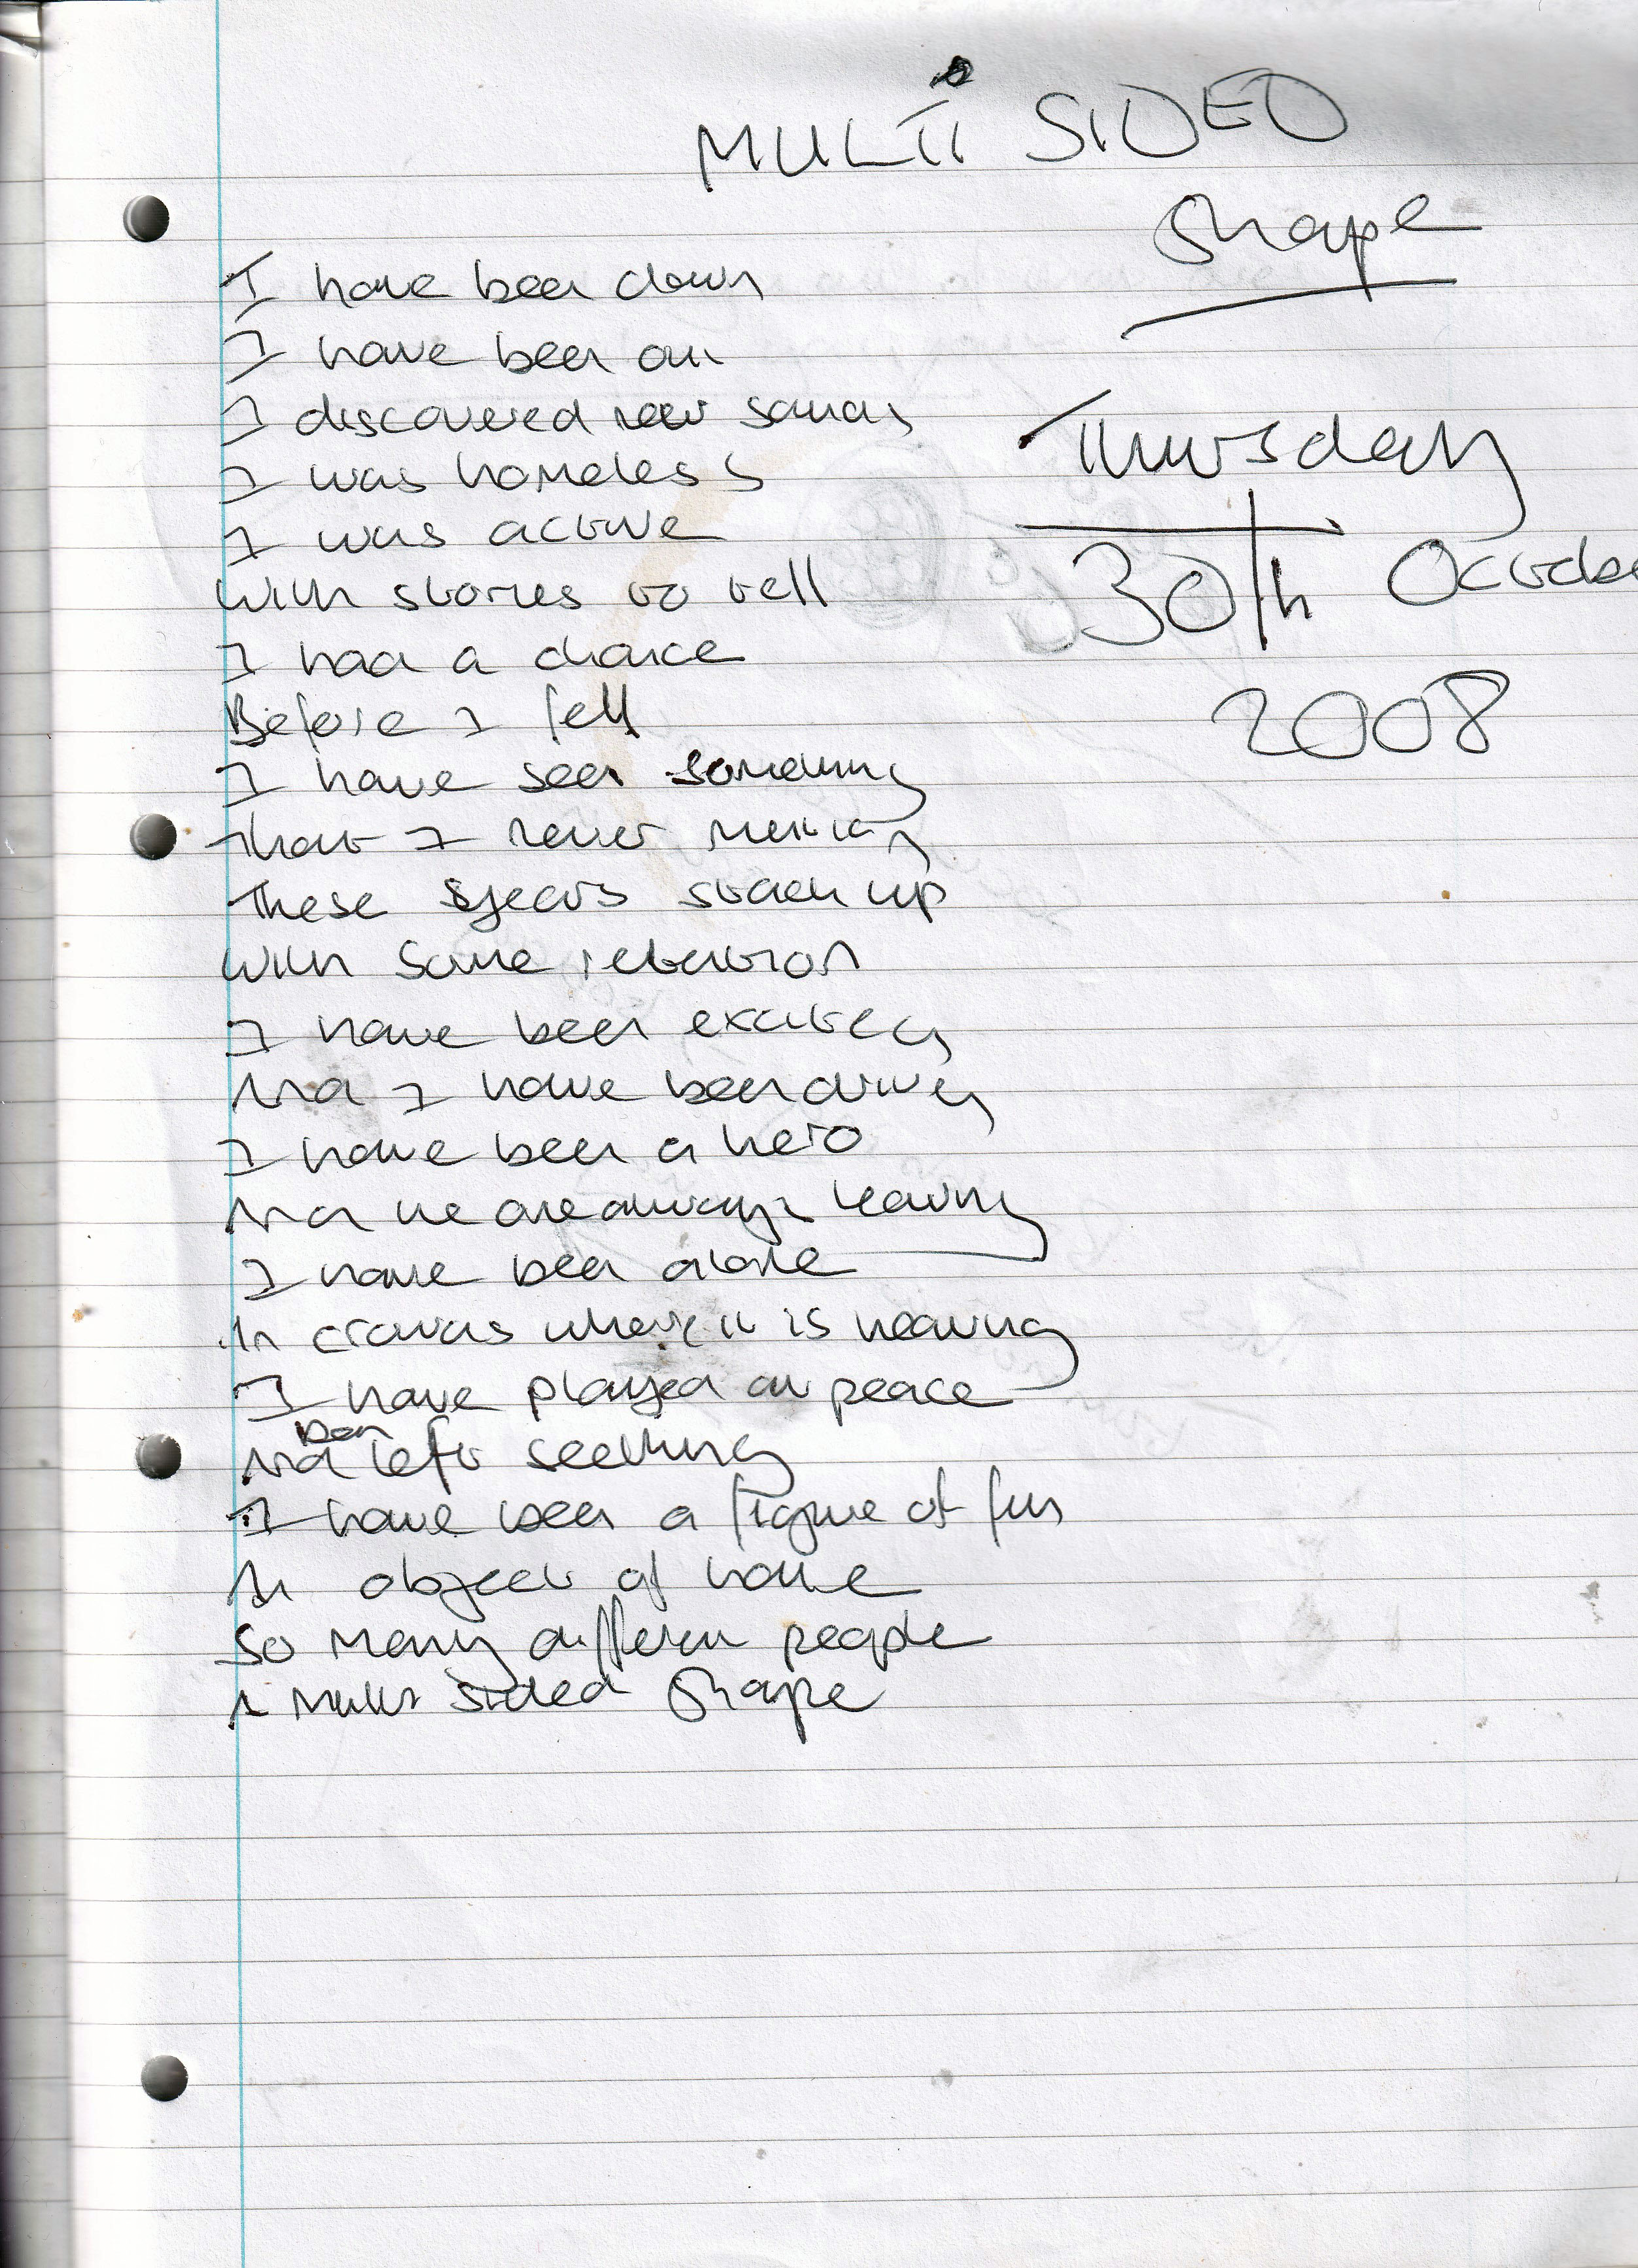 MULTI SIDED
Shape
Thursday
30th October
2008
I have been down
I have been
I discovered new sounds
I was homeless
I was active
With stories to tell
I had a chance
Before I fell
I have seen something
That I never mention
These years stack up
With some
I have been excited
And I have been driven
I have been a hero
And we are always leaving
I have been alone
In crowds where it is heaving
I have played at peace
And been left seething
I have been a figure of fun
An object of hate
So many different people
A Multi sided Shape